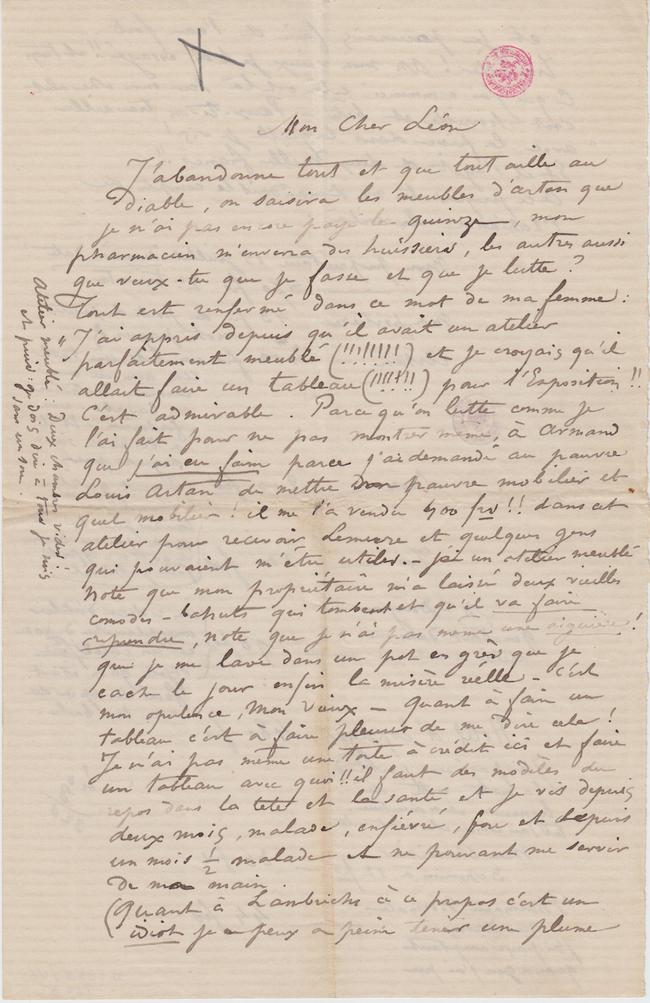 Mon Cher Léon
J'abandonne tout et que tout aille au
Diable, on saisira les meubles d'artan que
je n'ai pas encore payé le quinze, mon
pharmacien m'enverra des huissiers, les autres aussi
que veux-tu que je fasse et que je lutte?
Tout est renfermé dans ce mot de ma femme:
J'ai appris depuis qu'il avait un atelier
parfaitement meublé (!!!!!!!!) et je croyais qu'il
allait faire un tableau (!!!!!!!) pour l'Exposition!!
C'est admirable. Parce qu'on lutte comme je
l'ai fait pour ne pas montrer même à Armand
que j'ai eu faim parce j'ai demandé au pauvre
Louis Artan de mettre son pauvre mobilier et
quel mobilier! il me l'a vendu 400 frs!! dans cet
atelier pour recevoir Lemerre et quelques gens
qui pouvaient m'être utiles. - j'ai un atelier meublé
Note que mon propriétaire m'a laissé deux vieilles
comodes - bahuts qui tombent et qu'il va faire
reprendre, note que je n'ai pas même une aiguière!
que je me lave dans un pot en grès que je
cache le jour enfin la misère réelle - C'est
mon opulence, mon vieux - quant à faire un
tableau c'est à faire pleurer de me dire cela!
Je n'ai pas même une toile à crédit ici et faire
un tableau avec quoi!! il faut des modèles du
repos dans la tête et la santé et je vis depuis
deux mois, malade, enfiévré, fou et depuis
un mois 1/2 malade et ne pouvant me servir
de ma main.
(Quant à Lambrichs à ce propos c'est un
idiot je peux a peine tenir une plume
Atelier meublé: Deux chambres vides!
et puis je dois dire à tous je suis
sans un sou.